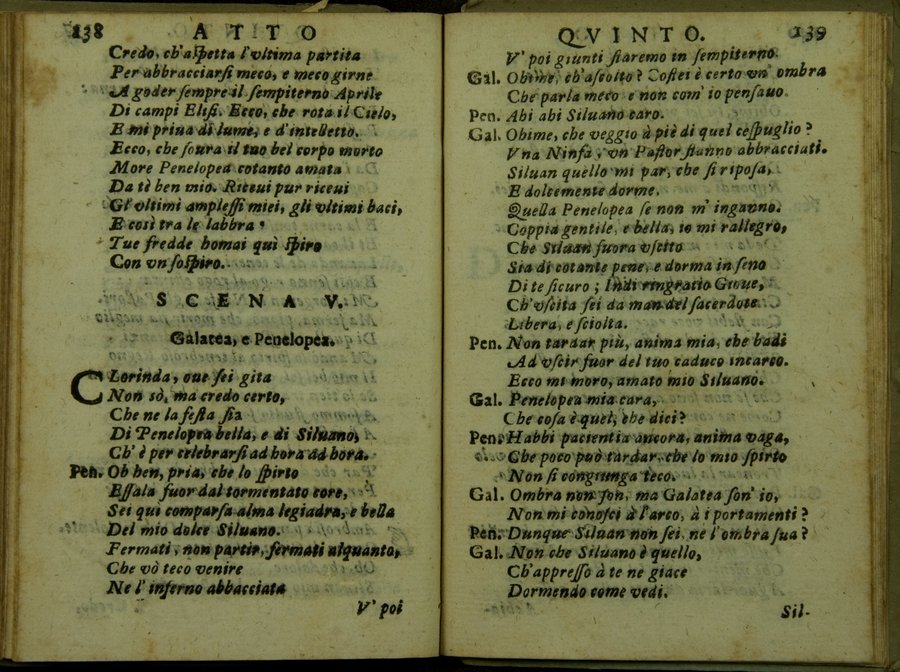 138 ATTO
Credo, ch'aſpetta l'vltima partita
Per abbracciarſi meco, e meco girne
A goder ſempre il ſempiterno Aprile
Di campi Eliſi. Ecco, che rota il Cielo,
E mi priua di lume, e d'intelletto.
Ecco, che ſoura il tuo bel corpo morto
More Penelopea cotanto amata
Da tè ben mio. Riceui pur riceui
Gl'vltimi ampleſſi miei, gli vltimi baci,
E così tra le labbra
Tue fredde homai quì ſpiro
Con vn ſoſpiro.
SCENA V.
Galatea, e Penelopea.
CLorinda, oue ſei gita
Non sò, ma credo certo,
Che ne la feſta ſia
Di Penelopea bella, e di Siluano,
Ch'è per celebrarſi ad hora ad hora.
Pen. Oh ben, pria, che lo ſpirto
Eſſala fuor dal tormentato core,
Sei qui comparſa alma legiadra, e bella
Del mio dolce Siluano.
Fermati, non partir, fermati alquanto,
Che vò teco venire
Ne l'inferno abbacciata
V' poi
QVINTO. 139
V' poi giunti ſtaremo in ſempiterno.
Gal. Ohime, ch'aſcolto? Coſtei è certo vn' ombra
Che parla meco e non com' io penſauo.
Pen. Ahi ahi Siluano caro.
Gal. Ohime, che veggio à piè di quel ceſpuglio?
Vna Ninfa, vn Paſtor ſtanno abbracciati.
Siluan quello mi par, che ſi ripoſa,
E dolcemente dorme.
Quella Penelopea ſe non m' inganno.
Coppia gentile, e bella, io mi rallegro,
Che Siluan fuora vſcito
Sia di cotante pene, e dorma in ſeno
Di te ſicuro; Indi ringratio Gioue,
Ch'vſcita ſei da man del ſacerdote
Libera, e ſciolta.
Pen. Non tardar più, anima mia, che badi
Ad vſcir fuor del tuo caduco incarco.
Ecco mi moro, amato mio Siluano.
Gal. Penelopea mia cara,
Che coſa è quel, che dici?
Pen. Habbi patientia ancora, anima vaga,
Che poco può tardar, che lo mio ſpirto
Non ſi congiunga teco.
Gal. Ombra non ſon, ma Galatea ſon' io,
Non mi conoſci à l'arco, à i portamenti?
Pen. Dunque Siluan non ſei, ne l'ombra ſua?
Gal. Non che Siluano è quello,
Ch'appreſſo à te ne giace
Dormendo come vedi.
Sil-